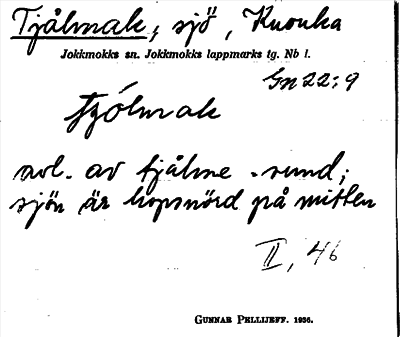 Tjålmak, sjö, Kuouka
Jokkmokks sn. Jokkmokks lappmarks tg. Nb l.
Gn 22:9
tjólmak
avl. av tjålme - sund;
sjön är hopsnörd på mitten
II, 46
GUNNAR PELLIJEFF. 1956.